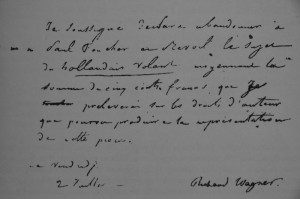 Je soussigné déclare abandonner à
Paul Foucher et Revoil le Sujet
du Hollandais Volant moyennant la
somme de cinq cents francs, que je
prelèverai sur les droits d'auteur
que pourra produire la représentation
de cette pièce.
ce vendredi
2 Juillet
Richard Wagner.